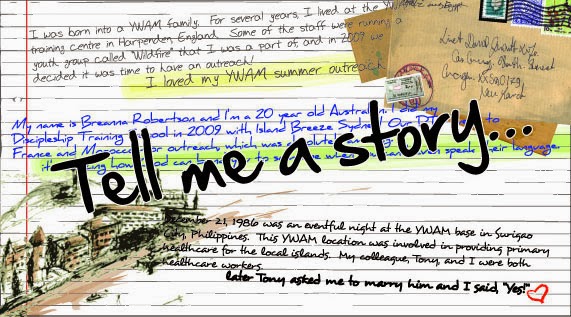 I was born into a YWAM family. For several years, I lived at the YWAM
training centre in Harpenden, England. Some of the staff were running a
youth group called "Wildfire" that I was a part of, and in 2009 we
decided it was time to have an outreach!
I loved my YWAM summer outreach
My name is Breanna Robertson and I'm a 20 year old Australian. I did my
Discipleship Training School in 2009 with Island Breeze Sydney! Our DT to
France and Morocco for outreach which was absolute
how God can when even speak their language.
Tell me a story...
December 21, 1986 was an eventful night at the YWAM base in Surigao
City, Philippines. This YWAM location was involved in providing primary
healthcare for the local islands. My colleague, Tony, and I were both
healthcare workers.
later Tony asked me to marry him and I said, "Yes!"